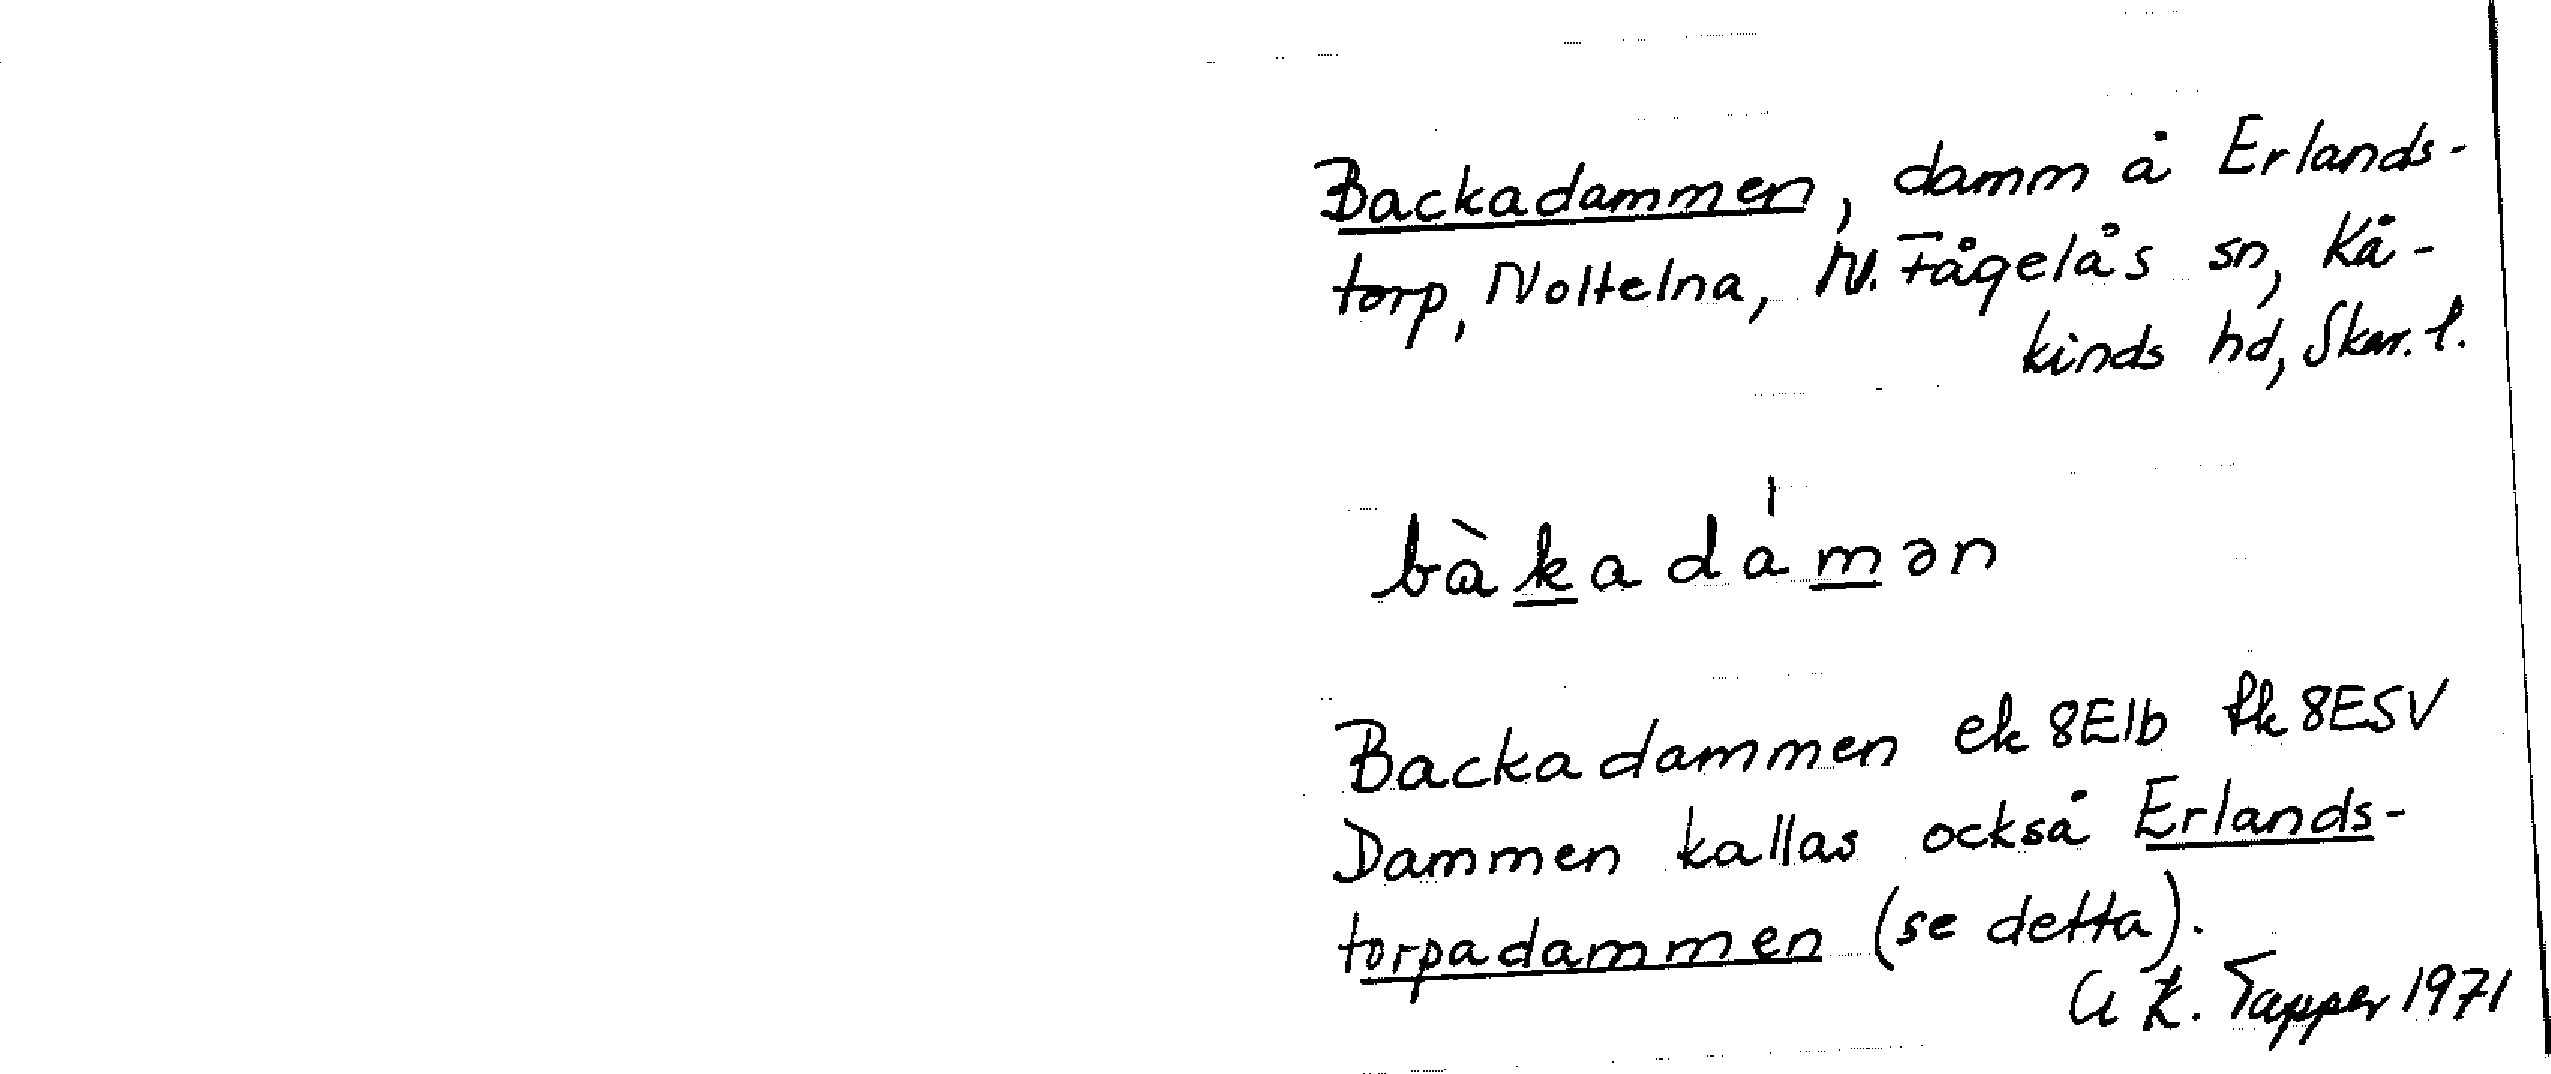 Backadammen, damm å Erlands-
torp, Noltelna, N. Fågelås sn, Kå-
kinds hd, Skar. l.
bàkadámən
Backadammen ek 8E1b fk 8E5V
Dammen kallas också Erlands-
torpadammen (se detta).
Tapper 1971